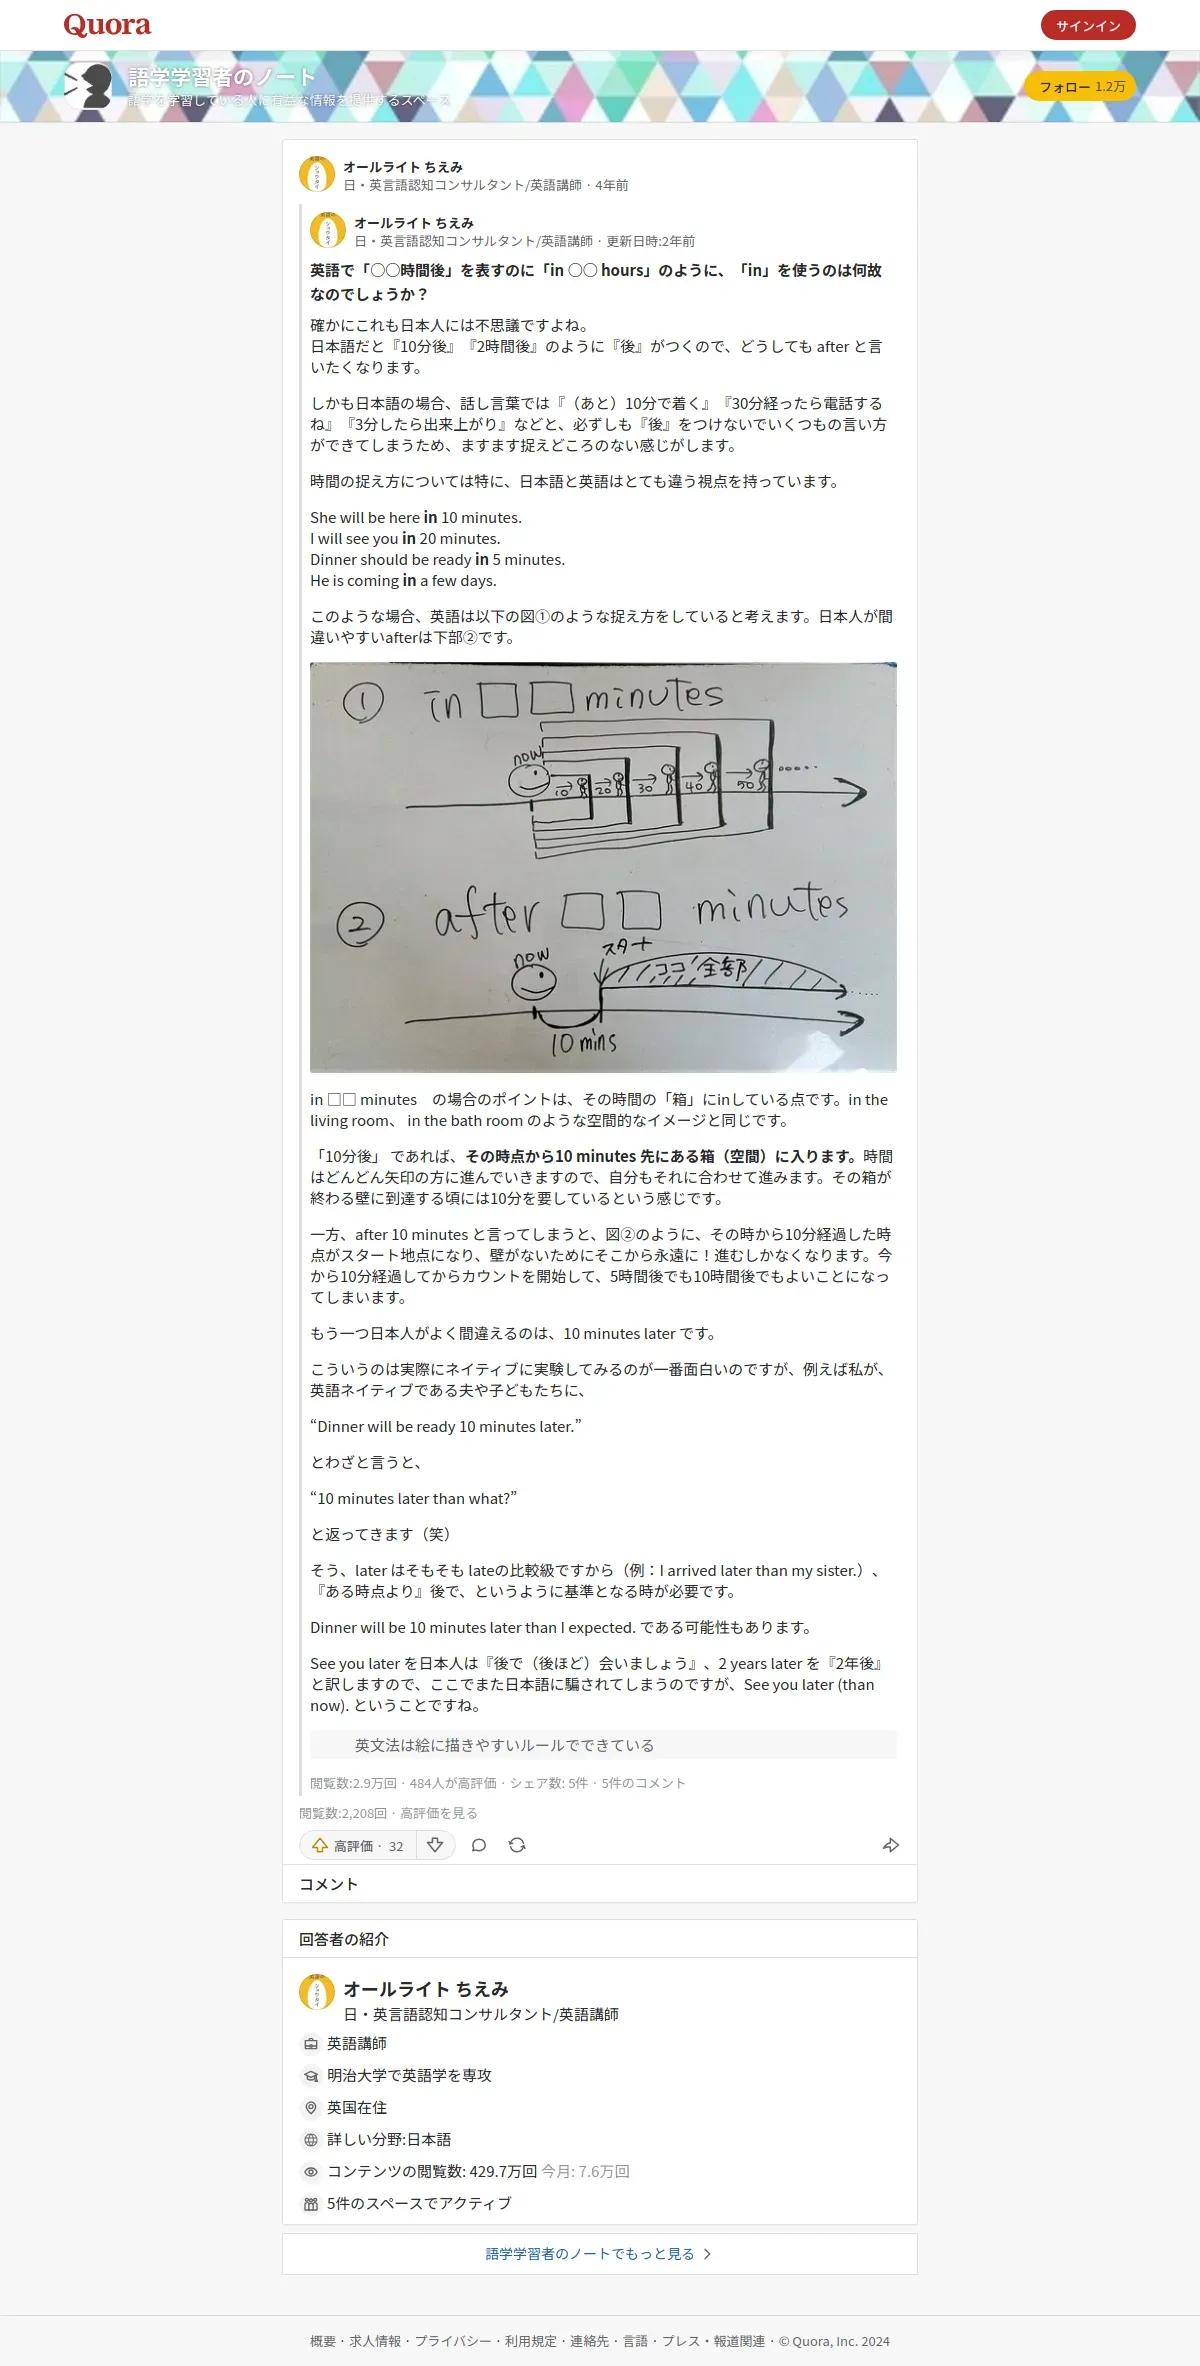 Quora
サインイン
語学学習者のノート
語学を学習している人に有益な情報を提供するスペース
フォロー 1.2万
オールライト ちえみ
日・英言語認知コンサルタント/英語講師 · 4年前
オールライト ちえみ
日・英言語認知コンサルタント/英語講師 · 更新日時:2年前
英語で「〇〇時間後」を表すのに「in 〇〇 hours」のように、「in」を使うのは何故
なのでしょうか？
確かにこれも日本人には不思議ですよね。
日本語だと『10分後』『2時間後』のように『後』がつくので、どうしても after と言
いたくなります。
しかも日本語の場合、話し言葉では『（あと）10分で着く』『30分経ったら電話する
ね』『3分したら出来上がり』などと、必ずしも『後』をつけないでいくつもの言い方
ができてしまうため、ますます捉えどころのない感じがします。
時間の捉え方については特に、日本語と英語はとても違う視点を持っています。
She will be here in 10 minutes.
I will see you in 20 minutes.
Dinner should be ready in 5 minutes.
He is coming in a few days.
このような場合、英語は以下の図①のような捉え方をしていると考えます。日本人が間
違いやすいafterは下部②です。
① in □ □ minutes
now
10 20 30 40 50
② after □ □ minutes
now スタート
ココ全部
10 mins
in □□ minutes　の場合のポイントは、その時間の「箱」にinしている点です。in the
living room、 in the bath room のような空間的なイメージと同じです。
「10分後」 であれば、その時点から10 minutes 先にある箱（空間）に入ります。時間
はどんどん矢印の方に進んでいきますので、自分もそれに合わせて進みます。その箱が
終わる壁に到達する頃には10分を要しているという感じです。
一方、after 10 minutes と言ってしまうと、図②のように、その時から10分経過した時
点がスタート地点になり、壁がないためにそこから永遠に！進むしかなくなります。今
から10分経過してからカウントを開始して、5時間後でも10時間後でもよいことになっ
てしまいます。
もう一つ日本人がよく間違えるのは、10 minutes later です。
こういうのは実際にネイティブに実験してみるのが一番面白いのですが、例えば私が、
英語ネイティブである夫や子どもたちに、
“Dinner will be ready 10 minutes later.”
とわざと言うと、
“10 minutes later than what?”
と返ってきます（笑）
そう、later はそもそも lateの比較級ですから（例：I arrived later than my sister.）、
『ある時点より』後で、というように基準となる時が必要です。
Dinner will be 10 minutes later than I expected. である可能性もあります。
See you later を日本人は『後で（後ほど）会いましょう』、2 years later を『2年後』
と訳しますので、ここでまた日本語に騙されてしまうのですが、See you later (than
now). ということですね。
英文法は絵に描きやすいルールでできている
閲覧数:2.9万回 · 484人が高評価 · シェア数: 5件 · 5件のコメント
閲覧数:2,208回 · 高評価を見る
高評価 · 32
コメント
回答者の紹介
オールライト ちえみ
日・英言語認知コンサルタント/英語講師
英語講師
明治大学で英語学を専攻
英国在住
詳しい分野:日本語
コンテンツの閲覧数: 429.7万回 今月: 7.6万回
5件のスペースでアクティブ
語学学習者のノートでもっと見る
概要 · 求人情報 · プライバシー · 利用規定 · 連絡先 · 言語 · プレス・報道関連 · © Quora, Inc. 2024